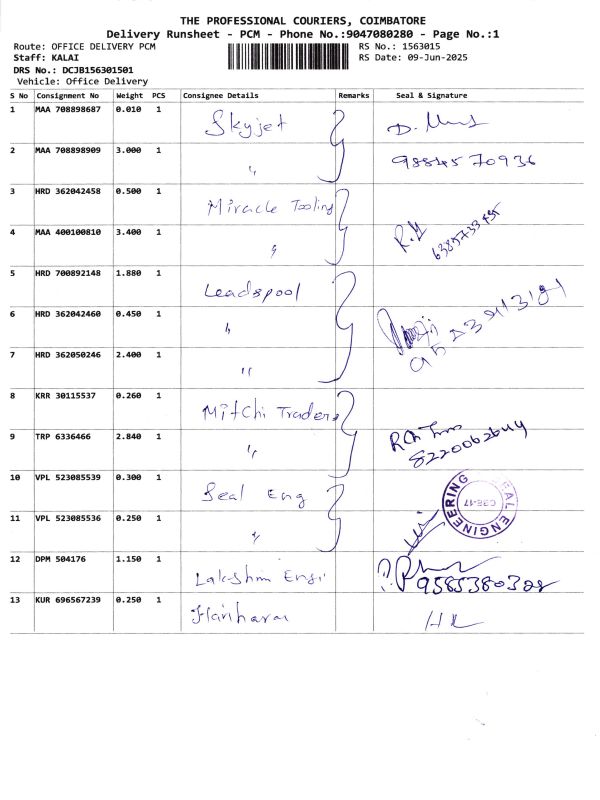 THE PROFESSIONAL COURIERS, COIMBATORE
Delivery Runsheet - PCM - Phone No.:9047080280 - Page No.:1
Route: OFFICE DELIVERY PCM
RS No.: 1563015
Staff: KALAI
RS Date: 09-Jun-2025
DRS No.: DCJB156301501
Vehicle: Office Delivery
S No Consignment No Weight PCS Consignee Details Remarks Seal & Signature
1 MAA 708898687 0.010 1 Skyjet
2 MAA 708898909 3.000 1 " 9884570936
3 HRD 362042458 0.500 1 Miracle Tooling
4 MAA 400100810 3.400 1 "
5 HRD 700892148 1.880 1 Leadspool
6 HRD 362042460 0.450 1 "
7 HRD 362050246 2.400 1 "
8 KRR 30115537 0.260 1 Mitchi Traders
9 TRP 6336466 2.840 1 "
10 VPL 523085539 0.300 1 Seal Eng
11 VPL 523085536 0.250 1 " ENGINEERING
12 DPM 504176 1.150 1 Lakshmi Engi
13 KUR 696567239 0.250 1 Hariharan